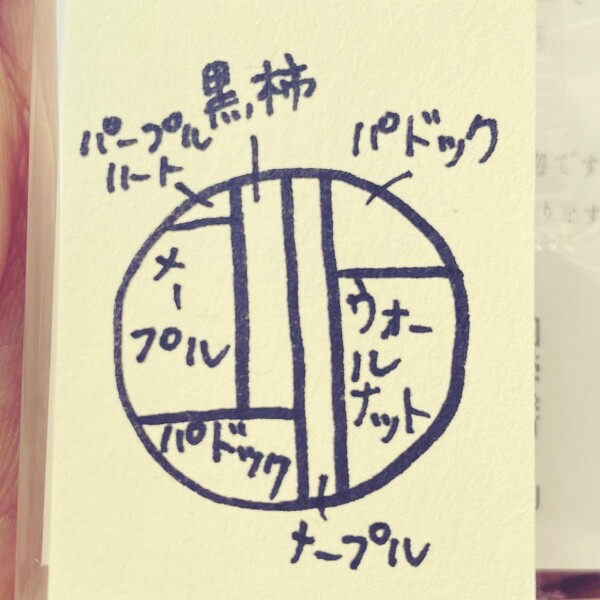 黒柿
パープル
ハート
パドック
メー
プル
ウォー
ル
ナット
パドック
メープル
です
ります